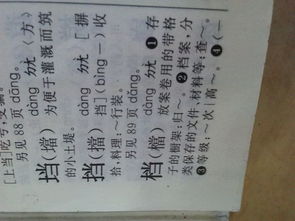 [上当]吃亏,受骗。
另见 88 页 dāng。
dàng ㄉㄤˋ 〈方〉
垱(壋) 为便于灌溉而筑
的小土堤。
dàng ㄉㄤˋ [摒
挡(擋) 挡](bìng—)收
拾,料理:~行装。
另见 89 页 dǎng。
dàng ㄉㄤˋ ❶存
档(檔) 放案卷用的带格
子的橱架:归~。❷档案,分
类保存的文件、材料等:查~。
❸等级:~次|高~。❹(—